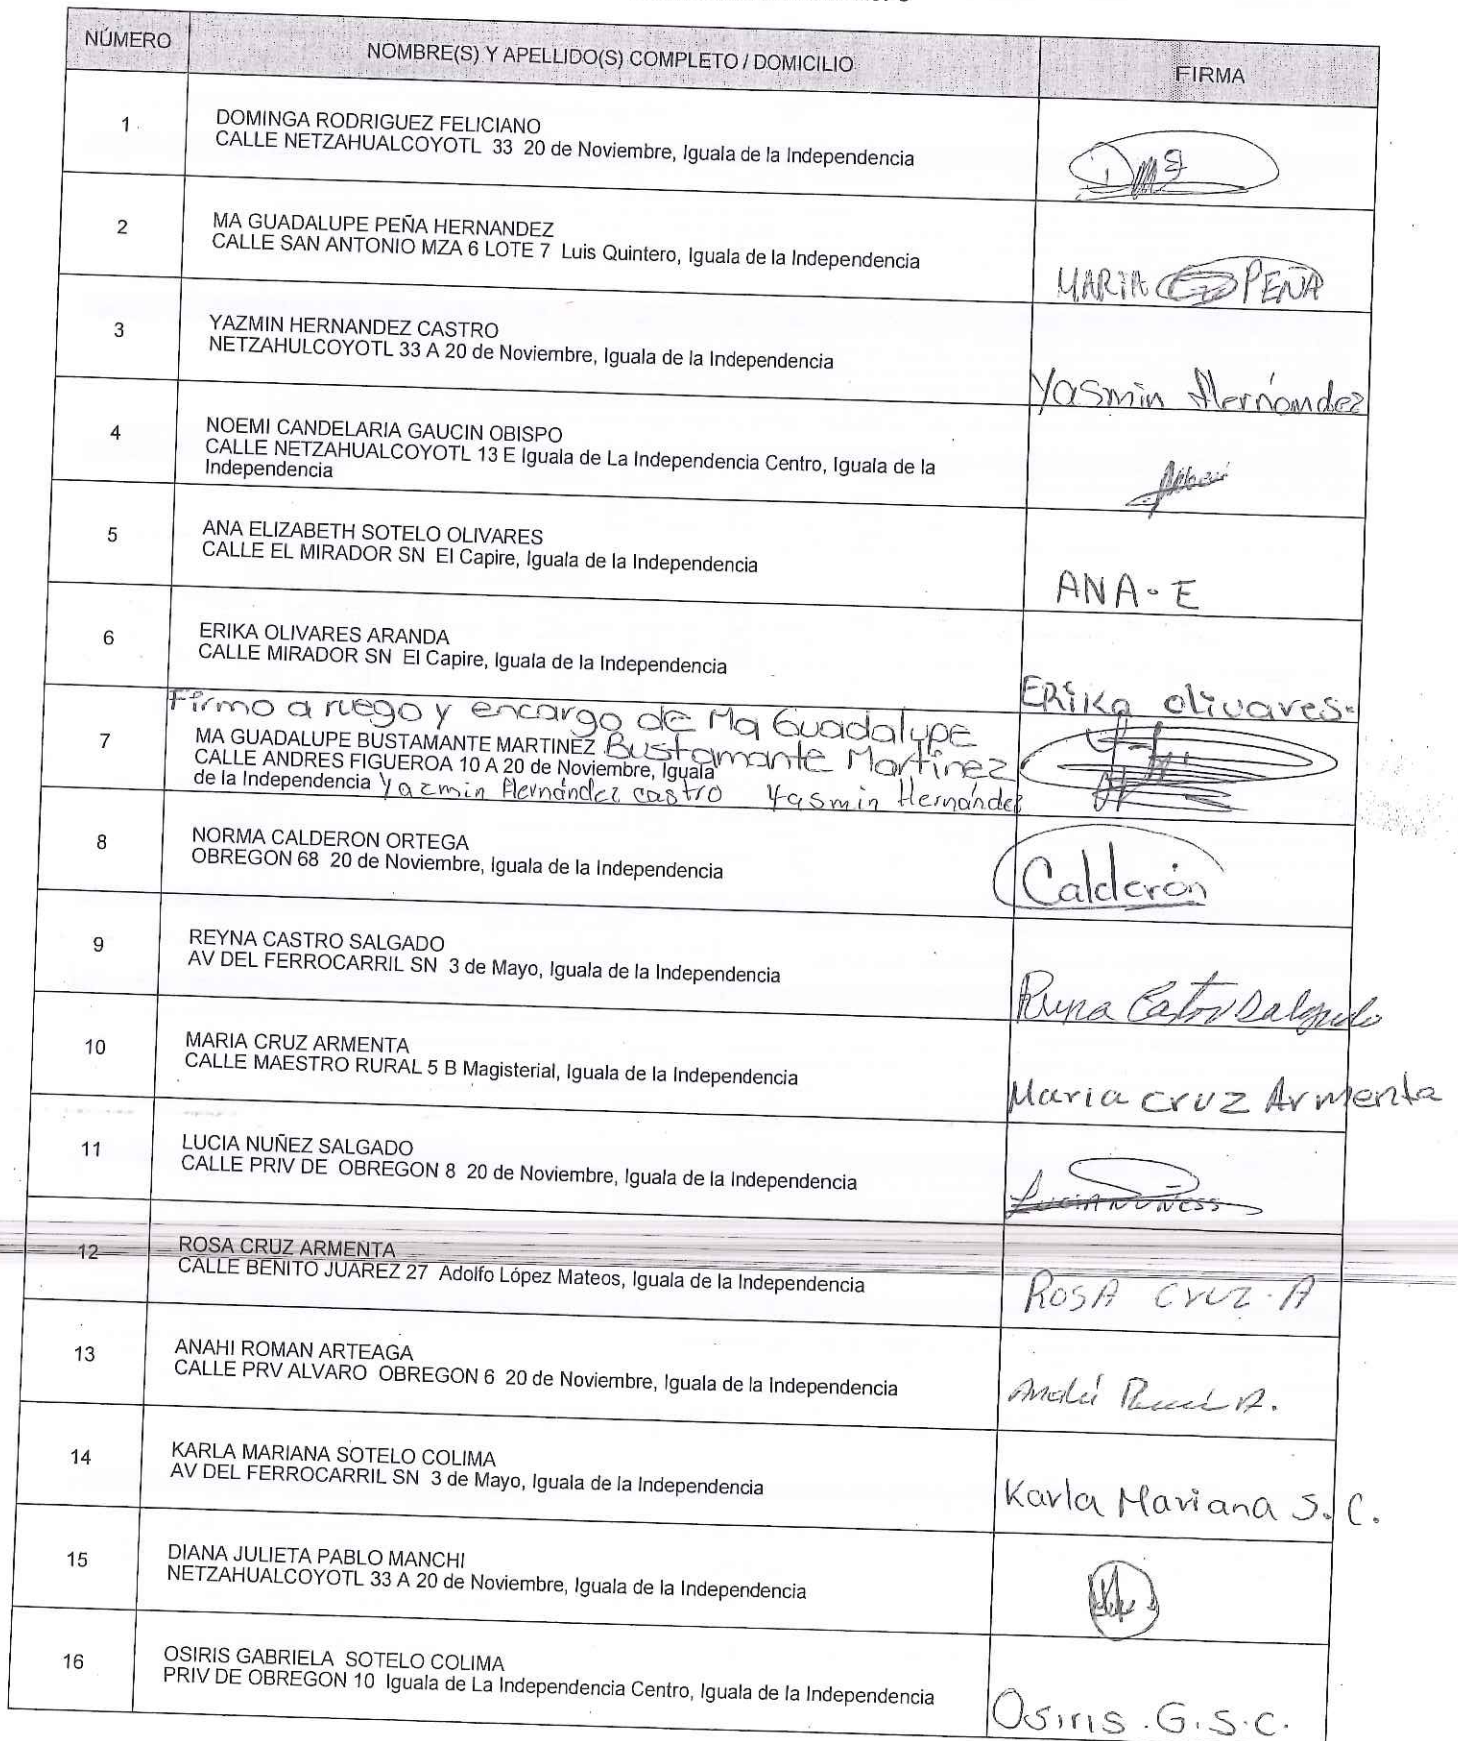 NÚMERO
NOMBRE(S) Y APELLIDO(S) COMPLETO / DOMICILIO
FIRMA
1
DOMINGA RODRIGUEZ FELICIANO
CALLE NETZAHUALCOYOTL 33 20 de Noviembre, Iguala de la Independencia
2
MA GUADALUPE PEÑA HERNANDEZ
CALLE SAN ANTONIO MZA 6 LOTE 7 Luis Quintero, Iguala de la Independencia
MARIA PEÑA
3
YAZMIN HERNANDEZ CASTRO
NETZAHULCOYOTL 33 A 20 de Noviembre, Iguala de la Independencia
Yasmin Hernández
4
NOEMI CANDELARIA GAUCIN OBISPO
CALLE NETZAHUALCOYOTL 13 E Iguala de La Independencia Centro, Iguala de la
Independencia
5
ANA ELIZABETH SOTELO OLIVARES
CALLE EL MIRADOR SN El Capire, Iguala de la Independencia
ANA-E
6
ERIKA OLIVARES ARANDA
CALLE MIRADOR SN El Capire, Iguala de la Independencia
ERiKa olivares.
Firmo a ruego y encargo de Ma Guadalupe
7
MA GUADALUPE BUSTAMANTE MARTINEZ Bustamante Martínez
CALLE ANDRES FIGUEROA 10 A 20 de Noviembre, Iguala
de la Independencia Yazmin Hernández castro Yasmin Hernández
8
NORMA CALDERON ORTEGA
OBREGON 68 20 de Noviembre, Iguala de la Independencia
Calderón
9
REYNA CASTRO SALGADO
AV DEL FERROCARRIL SN 3 de Mayo, Iguala de la Independencia
Reyna Castro Salgado
10
MARIA CRUZ ARMENTA
CALLE MAESTRO RURAL 5 B Magisterial, Iguala de la Independencia
Maria cruz Armenta
11
LUCIA NUÑEZ SALGADO
CALLE PRIV DE OBREGON 8 20 de Noviembre, Iguala de la Independencia
12
ROSA CRUZ ARMENTA
CALLE BENITO JUAREZ 27 Adolfo López Mateos, Iguala de la Independencia
ROSA CRUZ. A
13
ANAHI ROMAN ARTEAGA
CALLE PRV ALVARO OBREGON 6 20 de Noviembre, Iguala de la Independencia
14
KARLA MARIANA SOTELO COLIMA
AV DEL FERROCARRIL SN 3 de Mayo, Iguala de la Independencia
Karla Mariana S. C.
15
DIANA JULIETA PABLO MANCHI
NETZAHUALCOYOTL 33 A 20 de Noviembre, Iguala de la Independencia
16
OSIRIS GABRIELA SOTELO COLIMA
PRIV DE OBREGON 10 Iguala de La Independencia Centro, Iguala de la Independencia
Osiris .G.S.C.